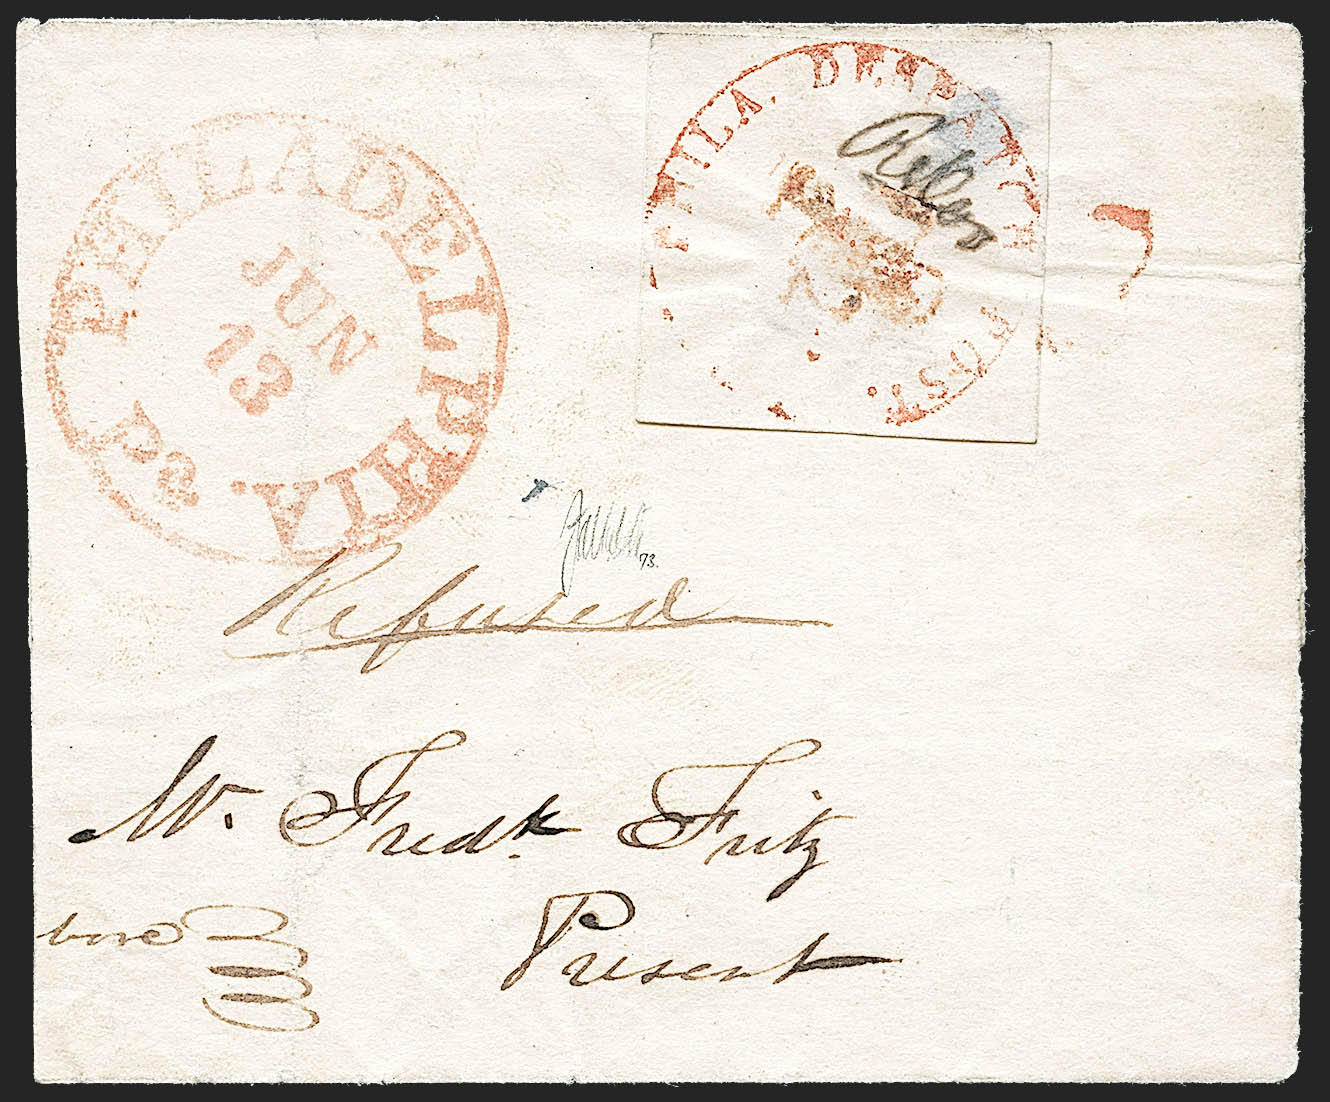 PHILADELPHIA. Pa
JUN
13
PHILA. DESPATCH POST.
Refused
73.
Mr. Fredk. Fritz
Present